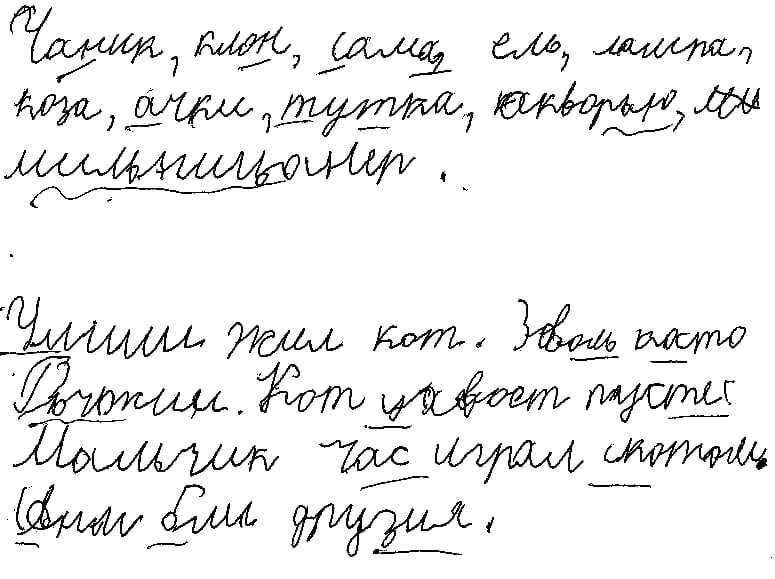 Чаник, клон, сама, ель, лампа,
коза, ачки, тутка, акворью, ми
мильницыонер.
Умиши жил кот. Зваль косто
Рычожим. Кот хвост пусте
Мальчик час играл скотом
Они бли друзия.